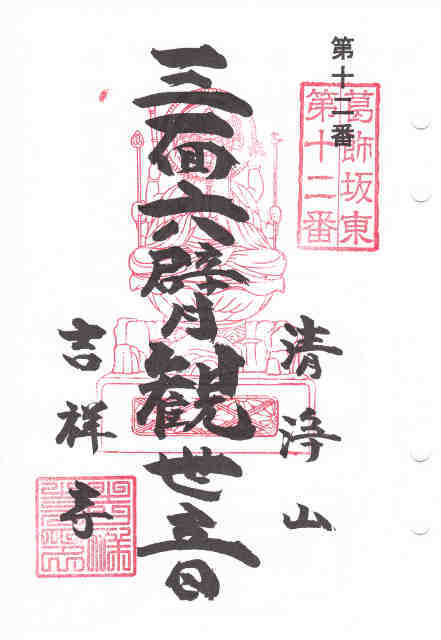 第十二番
葛飾坂東
第十二番
清浄山
三面六臂観世音
吉祥寺
吉祥寺